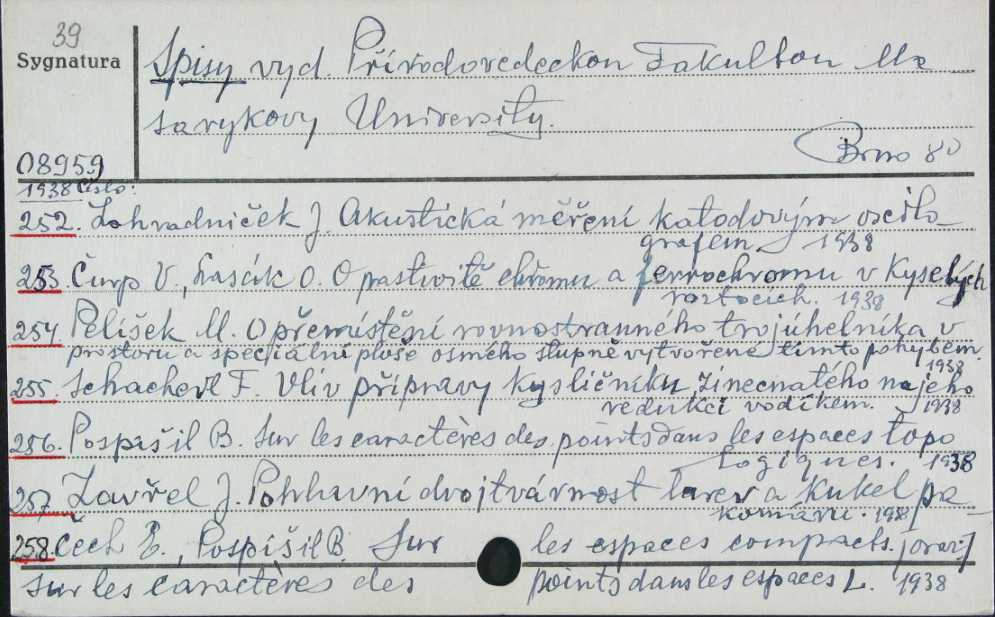 39
Sygnatura
Spisy vyd. Přírodovedeckon Fakulton Ma
sarykovy University.
Brno 80
08959
1938 číslo:
252. Zahradniček J. Akustická měření katodovým oscilo
grafem 1938
253. Čurp V., O. O chromu a ferrochromu v Kyselých
roztocích. 1938
254. Pelíšek M. O přemístění rovnostranného trojúhelníka v
prostoru a speciální ploše osmého stupně vytvořené tímto pohybem.
1938
255. Schacherl F. Vliv přípravy Kysličníku zinecnatého na jeho
redukci vodíkem. 1938
256. Pospíšil B. Sur les caractères des points dans les espaces topo
logiques. 1938
257. Zavřel J. Pohlavní dvojtvárnost larev a kukel pa
komárů. 1938
258. Čech E., Pospíšil B. Sur les espaces compacts.
sur les caractères des points dans les espaces L. 1938